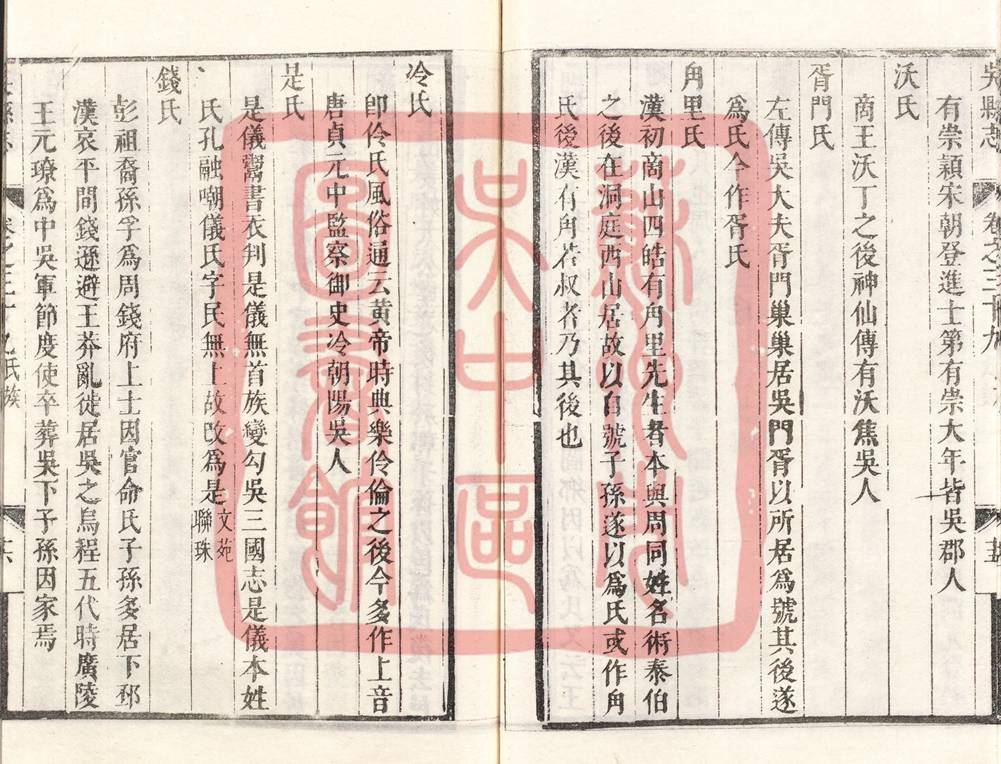 吳縣志
卷之三十九
有崇穎宋朝登進士第有崇大年皆吳郡人
沃氏
商王沃丁之後神仙傳有沃焦吳人
胥門氏
左傳吳大夫胥門巢巢居吳門胥以所居爲號其後遂
爲氏今作胥氏
角里氏
漢初商山四皓有角里先生者本與周同姓名術泰伯
之後在洞庭西山居故以自號子孫遂以爲氏或作角
氏後漢有角若叔者乃其後也
冷氏
卽伶氏風俗通云黃帝時典樂伶倫之後今多作上音
唐貞元中監察御史冷朝陽吳人
是氏
是儀鬻書衣判是儀無首族變勾吳三國志是儀本姓
氏孔融嘲儀氏字民無上故改爲是文苑聯珠
錢氏
彭祖裔孫孚爲周錢府上士因官命氏子孫多居下邳
漢哀平間錢遜避王莽亂徙居吳之烏程五代時廣陵
王元璙爲中吳軍節度使卒葬吳下子孫因家焉
卷之三十九氏族
蘇州市
吳中區
圖書館